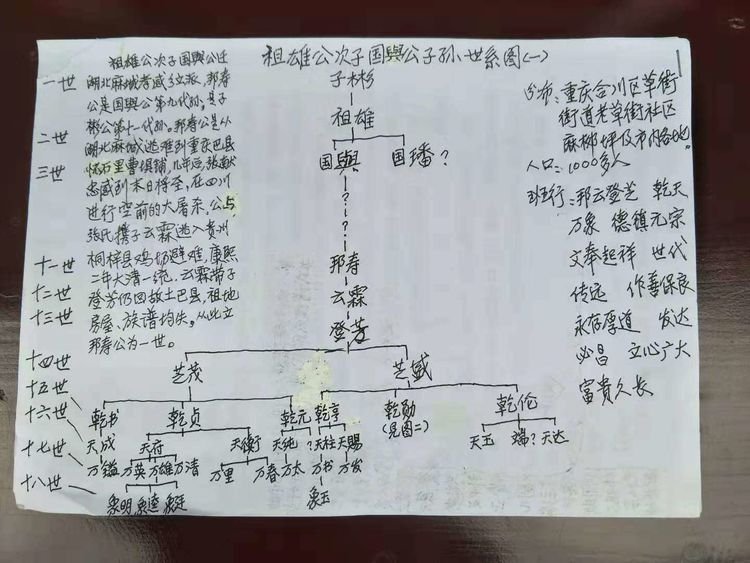 祖雄公次子国與公子孙世系图(一)
祖雄公次子国與公迁
湖北麻城孝感乡立派,邦寿
公是国與公第九代孙,是子
彬公第十一代孙。邦寿公是从
湖北麻城逃难到重庆巴县
怀石里曹俱铺,几年后,张献
忠贼到本日将至,在四川
进行空前的大屠杀,公与
张氏携子云霖逃入贵州
桐梓县鸡切避难,康熙
二年大清一统,云霖带子
登芳仍回故土巴县,祖地
房屋、族谱均失。从此立
邦寿公为一世。
一世
二世
三世
十一世
十二世
十三世
十四世
十五世
十六世
十七世
十八世
子彬
祖雄
国與 国璠?
?
?
?
邦寿
云霖
登芳
芝茂 芝盛
乾书 乾贞 乾元 乾亨 乾勋 乾伦
(见图二)
天成 天府 天衡 天纯 ? 天柱 天赐 天玉 ? 天达
万镒 万英 万雄 万清 万里 万春 万太 万书 万发
象明 象逵 象廷 象玉
分布:重庆合川区草街
街道老草街社区
麻柳坪及市内各地。
人口:1000多人
班行:邦云登芝 乾天
万象 德镇元宗
文奉起祥 世代
传远 作善保良
永存厚道 发达
必昌 立心广大
富贵久长